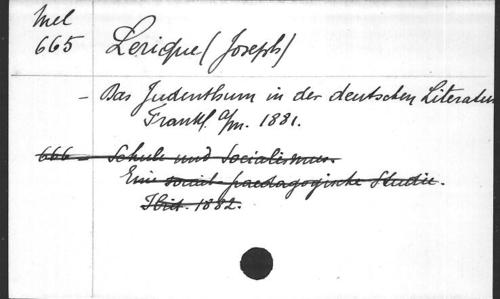 Mel
665 Lerique (Joseph)
– Das Judenthum in der deutschen Literatur
Frankf. a/m. 1881.
666 – Schule und Socialismus.
Eine social-paedagogische Studie.
Ibid. 1882.